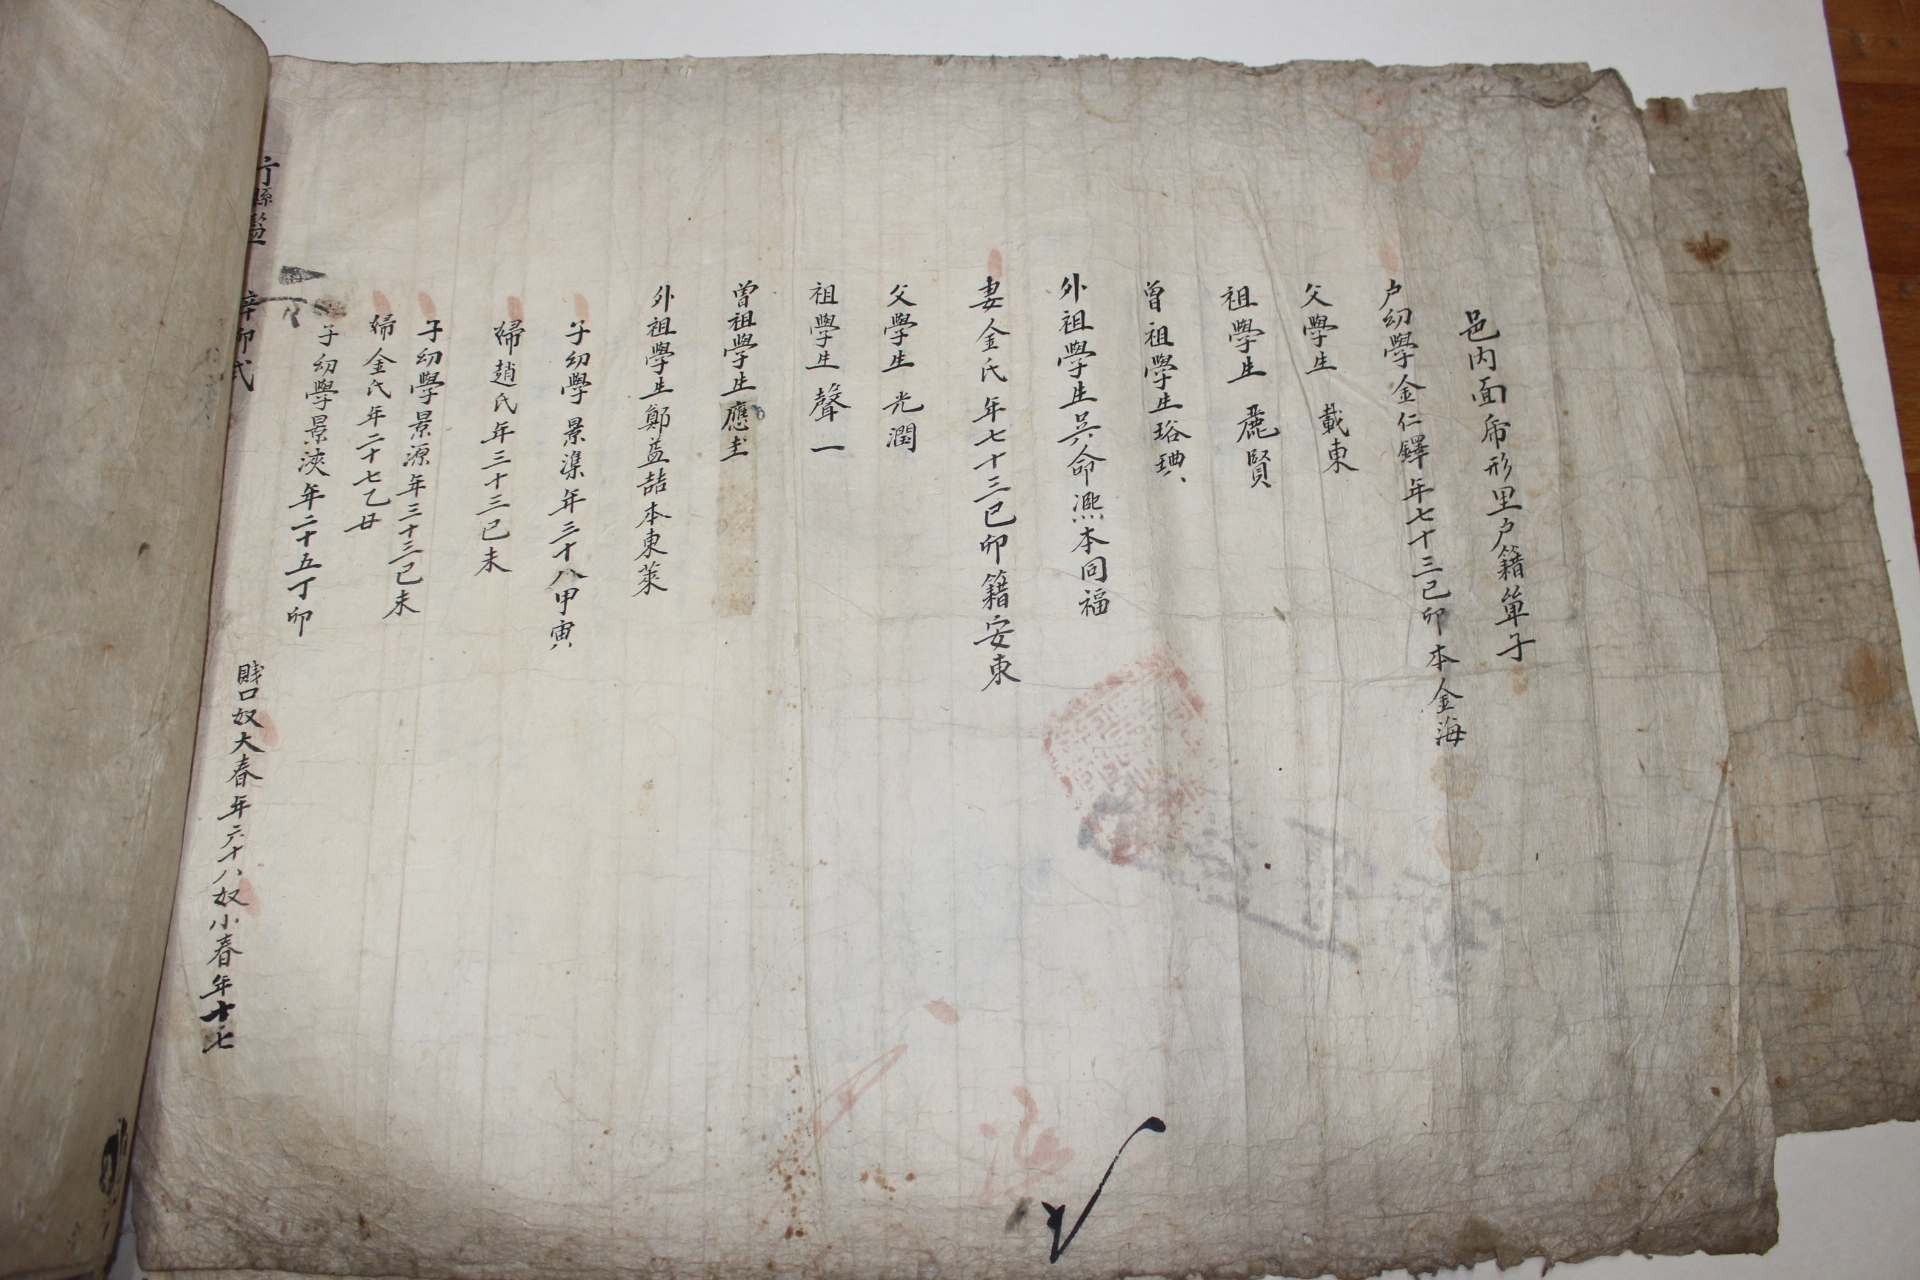 邑內面帝形里户籍單子
户幼學金仁鐸年七十三己卯本金海
父學生 載東
祖學生 麗賢
曾祖學生
外祖學生吳命熈本同福
妻金氏年七十三己卯籍安東
父學生光潤
祖學生聲一
曾祖學生應
外祖學生鄭益喆本東萊
子幼學景渠年三十八甲寅
婦趙氏年三十三己未
子幼學景源年三十三己未
婦金氏年二十七乙丑
子幼學景浹年二十五丁卯
賤口奴大春年六十八奴小春年十七
行縣監
辛卯式